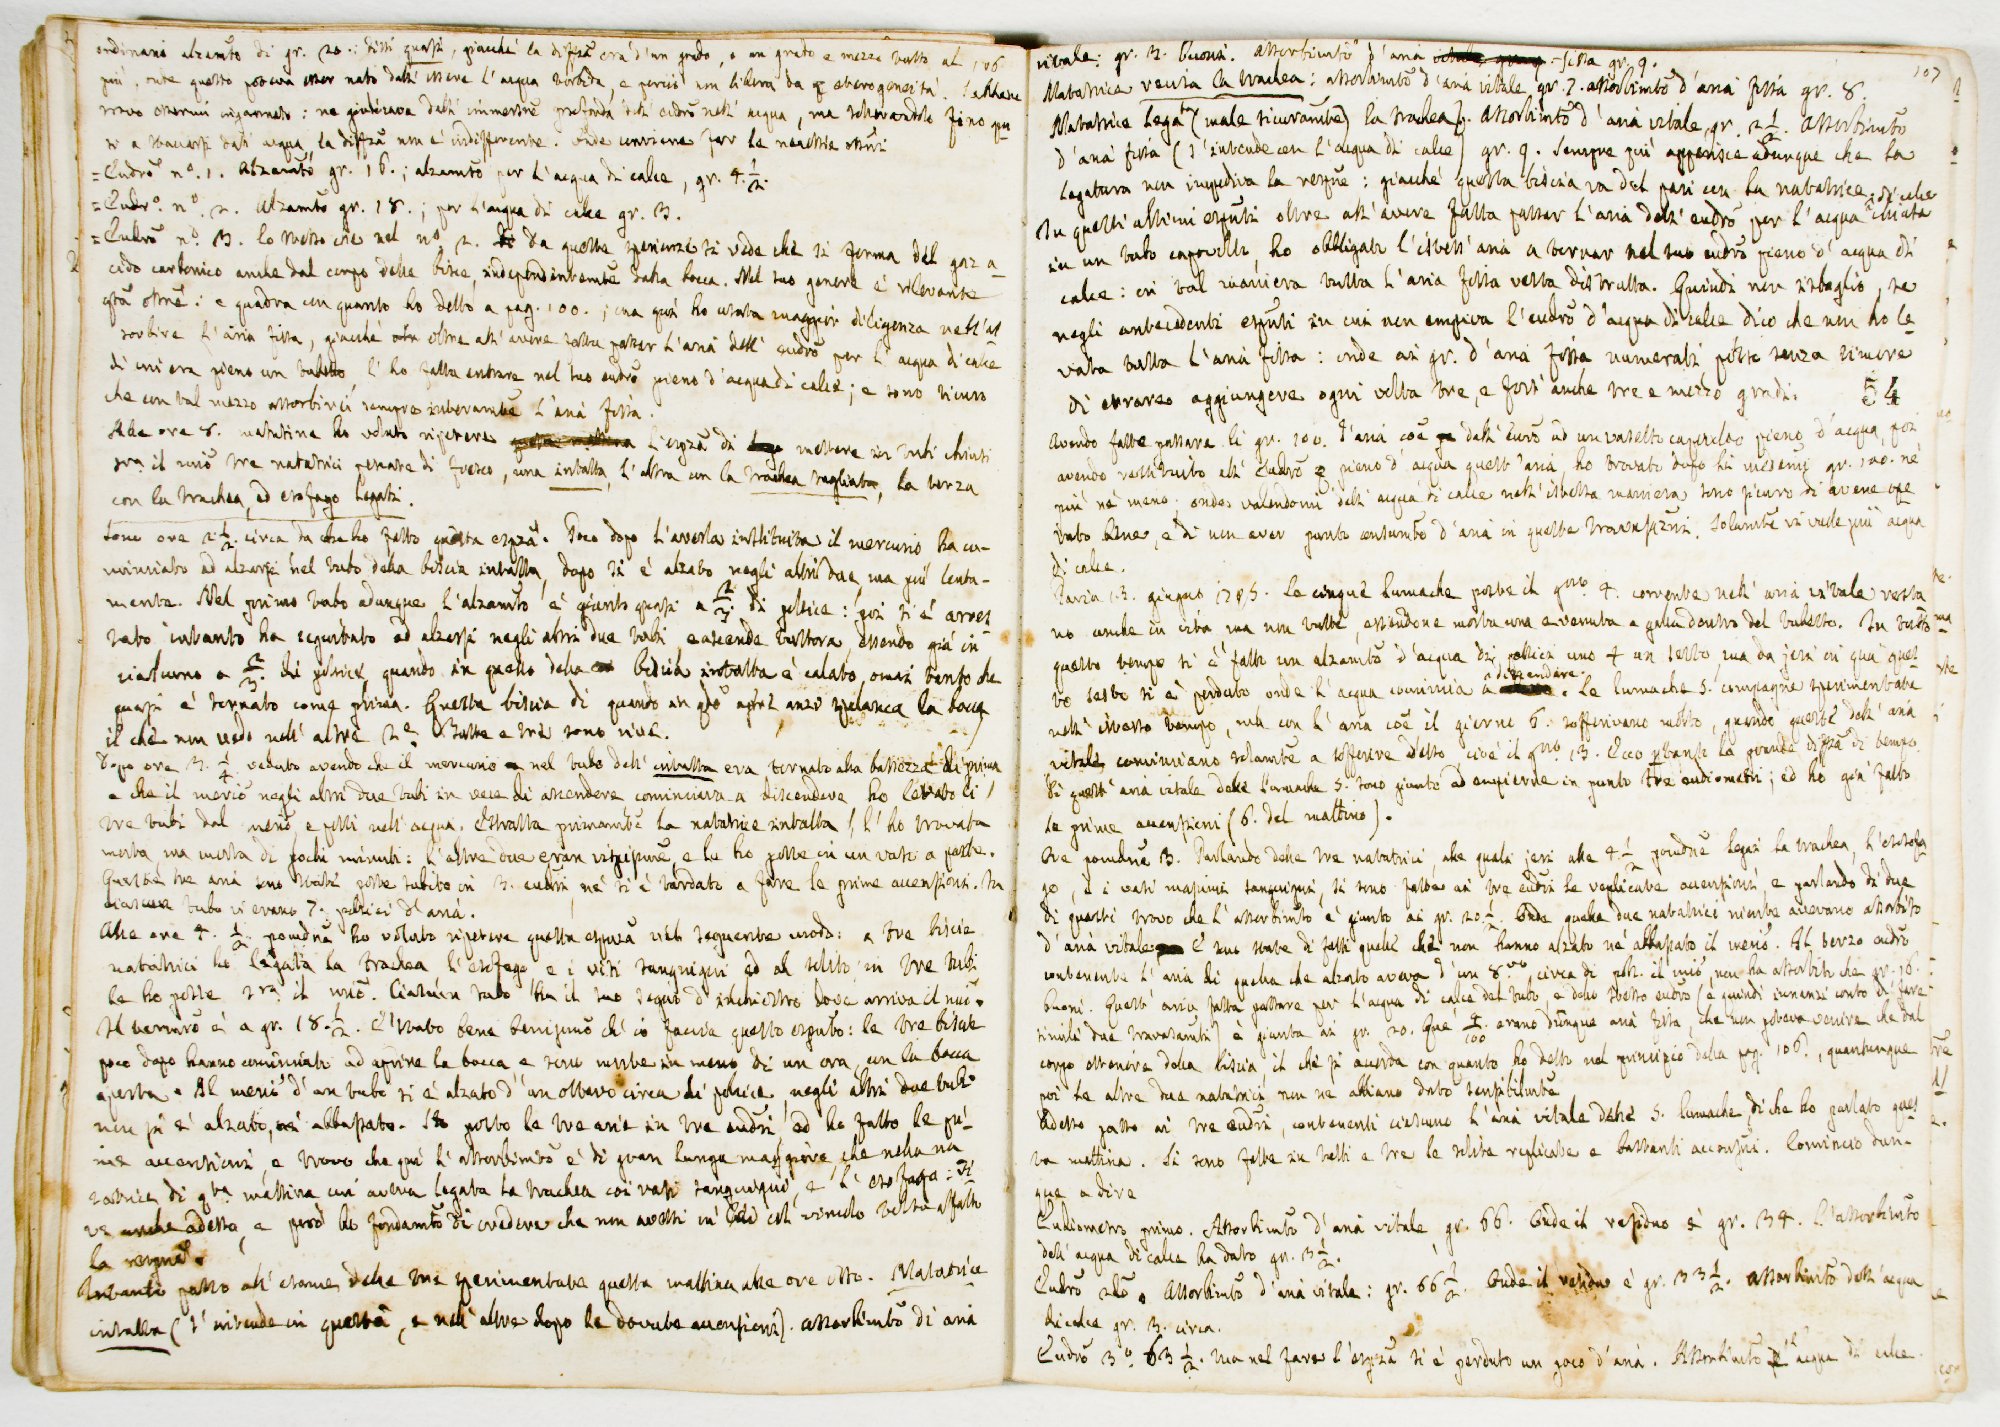 106
ordinario alzamto di gr. 20.: dissi quasi, giacché la diffza era d'un grado, o un grado e mezzo tutto al
più, onde questo poteva esser nato dall'essere l'acqua torbida, e perciò non libera da eterogeneità.
trovo essermi ingannato: ne giudicava dall' immersne profonda dell' eudro nell' acqua, ma sollevandolo fino qua
si a staccarsi dall' acqua, la diffza non è indifferente. Onde conviene far le neccessie
= Eudro no. 1. Alzamto gr. 16.; alzamto per l'acqua di calce, gr. 4. 1/2.
= Eudro. no. 2. Alzamto gr. 18.; per l'acqua di calce gr. 3.
= Eudro no. 3. Lo stesso che nel no 2. Da queste sperienze si vede che si forma del gaz a-
cido carbonico anche dal corpo delle bisce, independentemte dalla bocca. Nel suo genere è rilevante
qta: e quadra con quanto ho detto a pag. 100.; ma qui ho usata maggior diligenza nell'as
sorbire l'aria fissa, giacché oltre all' avere fatto passar l'aria dell' eudro per l'acqua di calce
di cui era pieno un tubetto, l'ho fatta entrare nel suo eudro pieno d'acqua di calce; e sono sicuro
che con tal mezzo assorbirci sempre interamte l'aria fissa.
Alle ore 8. matutine ho voluto ripetere l'esprza di mettere in tubi chiusi
sra il mrio tre natatrici pescate di fresco, una intatta, l'altra con la trachea tagliata, la terza
con la trachea, ed esofago legati.
Sono ore 2 1/2 circa da che ho fatto questa esprza. Poco dopo l'averla instituita il mercurio ha co-
minciato ad alzarsi nel tubo della biscia intatta, dopo si è alzato negli altri due, ma più lenta-
mente. Nel primo tubo adunque l'alzamto è giunto quasi a 2/3. di pollice: poi si è arres
tato intanto ha seguitato ad alzarsi negli altri due tubi e ascende tuttora, essendo già in
ciascuno a 2/3. di pollice, quando in quello della biscia intatta è calato, omai tanto che
quasi è tornato come prima. Questa biscia di quando in qdo apre anzi spalanca la bocca
il che non vedo nell' altre 2e. Tutte e tre sono vive.
Dopo ore 3. 1/4 veduto avendo che il mercurio nel tubo dell' intatta era tornato alla bassezza di prima
e che il mercio negli altri due tubi in vece di ascendere cominciava a discendere, ho levato li
tre tubi dal merio, e posti nell' acqua. Estratta primamte la natatrice intatta, l'ho trovata
morta, ma morta di pochi minuti: l'altre due eran vispissime, e le ho poste in un vaso a parte.
Queste tre arie sono state poste subito in 3. eudri, né si è tardato a fare le prime accensioni. In
ciascun tubo vi erano 7. pollici d'aria.
Alle ore 4. 1/2. pomdne ho voluto ripetere questa esprza nel seguente modo: a tre biscie
natatrici ho legata la trachea l'esofago e i vasi sanguigni ed al solito in tre tubi
le ho poste sra il mrio. Ciascun tubo ha il suo segno d'inchiostro dove arriva il mrio.
Il termro è a gr. 18. 1/2. È stato bene benissimo ch' io facessi questo espto: le tre biscie
poco dopo hanno cominciato ad aprire la bocca e sono morte in meno di un ora, con la bocca
aperta. Il merio d'un tubo si è alzato d'un ottavo circa di pollice, negli altri due tubi
non si è alzato, né abbassato. Ho posto le tre arie in tre eudri, ed ho fatto le pri
me accensioni, e trovo che qui l'assorbimto è di gran lunga maggiore, che nella na
tatrice di qta mattina cui aveva legata la trachea coi vasi sanguigni, e l'esofago: Si
ve anche adesso, e però ho fondamto di credere che non avessi in lei col vincolo tolta affatto
la respne.
Intanto passo all' esame delle tre sperimentate questa mattina alle ore otto. Natatrice
intatta (s'intende in questa, e nell' altre dopo le dovute accensioni). Assorbimto di aria
107
vitale: gr. 3. buoni. Assorbimto d'aria fissa gr. 9.
Natatrice recisa la trachea: assorbimto d'aria vitale gr. 7. assorbimto d'aria fissa gr. 8.
Natatrice legata (male sicuramte) la trachea. Assorbimto d'aria vitale gr. 2 1/2. Assorbimto
d'aria fissa (s'intende con l'acqua di calce) gr. 9. Sempre più apparisce adunque che la
legatura non impediva la respne: giacché questa biscia va del pari con la natatrice.
In questi ultimi esputi oltre all' avere fatta passar l'aria dell' eudro per l'acqua di calce chiusa
in un tubo capovolto, ho obbligato l'istess' aria a tornar nel suo eudro pieno d'acqua di
calce: in tal maniera tutta l'aria fissa resta distrutta. Quindi non isbaglio, se
negli antecedenti esputi in cui non empiva l'eudro d'acqua di calce dico che non ho le
vata tutta l'aria fissa: onde ai gr. d'aria fissa numerati posso senza timore
di errare aggiungere ogni volta tre, e fors' anche tre e mezzo gradi. 54
Avendo fatto passare li gr. 100. d'aria coe dall' eudro ad un vasetto capovolto pieno d'acqua, poi
avendo restituito all' eudro pieno d'acqua quest' aria, ho trovato dopo li medemi gr. 100. né
più né meno; onde valendomi dell' acqua di calce nell' istessa maniera sono sicuro di avere ope
rato bene, e di non aver punto consumto d'aria in queste travasazni. Solamte vi vuole più acqua
di calce.
Pavia 13. giugno 1795. Le cinque lumache poste il gno 4. corrente nell' aria vitale resta
no anche in vita ma non tutte, essendone morta una e venuta a galla dentro del tubetto. In tutto
questo tempo si è fatto un alzamto d'acqua di pollici uno + un sesto, ma da jeri in qua ques
to sesto si è perduto onde l'acqua comincia a discendere. Le lumache 5. compagne sperimentate
nell' istesso tempo, ma con l'aria coe il giorno 6. soffrivano molto, quando queste dell' aria
vitale cominciano solamte a soffrire adesso cioè il gno 13. Ecco pertanto la grande diffza di tempo.
Di quest' aria vitale delle lumache 5. sono giunto ad empierne in punto tre eudiometri; ed ho già fatto
le prime accensioni (6. del mattino).
Ore pomdne 3. Parlando delle tre natatrici alle quali jeri alle 4. 1/2 pomdne legai la trachea, l'esofa
go, e i vasi massimi sanguigni, si sono fatte ai tre eudri le replicate accensioni, e parlando di due
di questi trovo che l'assorbimto è giunto ai gr. 20. 1/2. Onde quelle due natatrici niente avevano assorbito
d'aria vitale. E sono state di fatti quelle che non hanno alzato né abbassato il merio. Il terzo eudro
contenente l'aria di quella che alzato aveva d'un 8vo. circa di poll. il mrio, non ha assorbito che gr. 16.
buoni. Quest' aria fatta passare per l'acqua di calce del tubo, e dello stesso eudro (e quindi innanzi conto di fare
simili due travasamti) è giunta ai gr. 20. Que 4/100 erano dunque aria fissa, che non poteva venire che dal
corpo esteriore della biscia, il che si accorda con quanto ho detto nel principio della pag. 106., quantunque
poi le altre due natatrici non ne abbiano dato sensibilmte
Adesso passo ai tre eudri, contenenti ciascuno l'aria vitale delle 5. lumache di che ho parlato ques
ta mattina. Si sono fatte in tutti e tre le solite replicate e bastanti accensni. Comincio dun-
que a dire
Eudiometro primo. Assorbimto d'aria vitale gr. 66. Onde il residuo è gr. 34. L'assorbimto
dell' acqua di calce ha dato gr. 3 1/2.
Eudro 2do. Assorbimto d'aria vitale: gr. 66 1/2. Onde il residuo è gr. 33 1/2. Assorbimto dell' acqua
di calce gr. 3. circa.
Eudro 3o. 63 1/2. Ma nel fare l'esprza si è perduto un poco d'aria. Assorbimto d'acqua di calce.